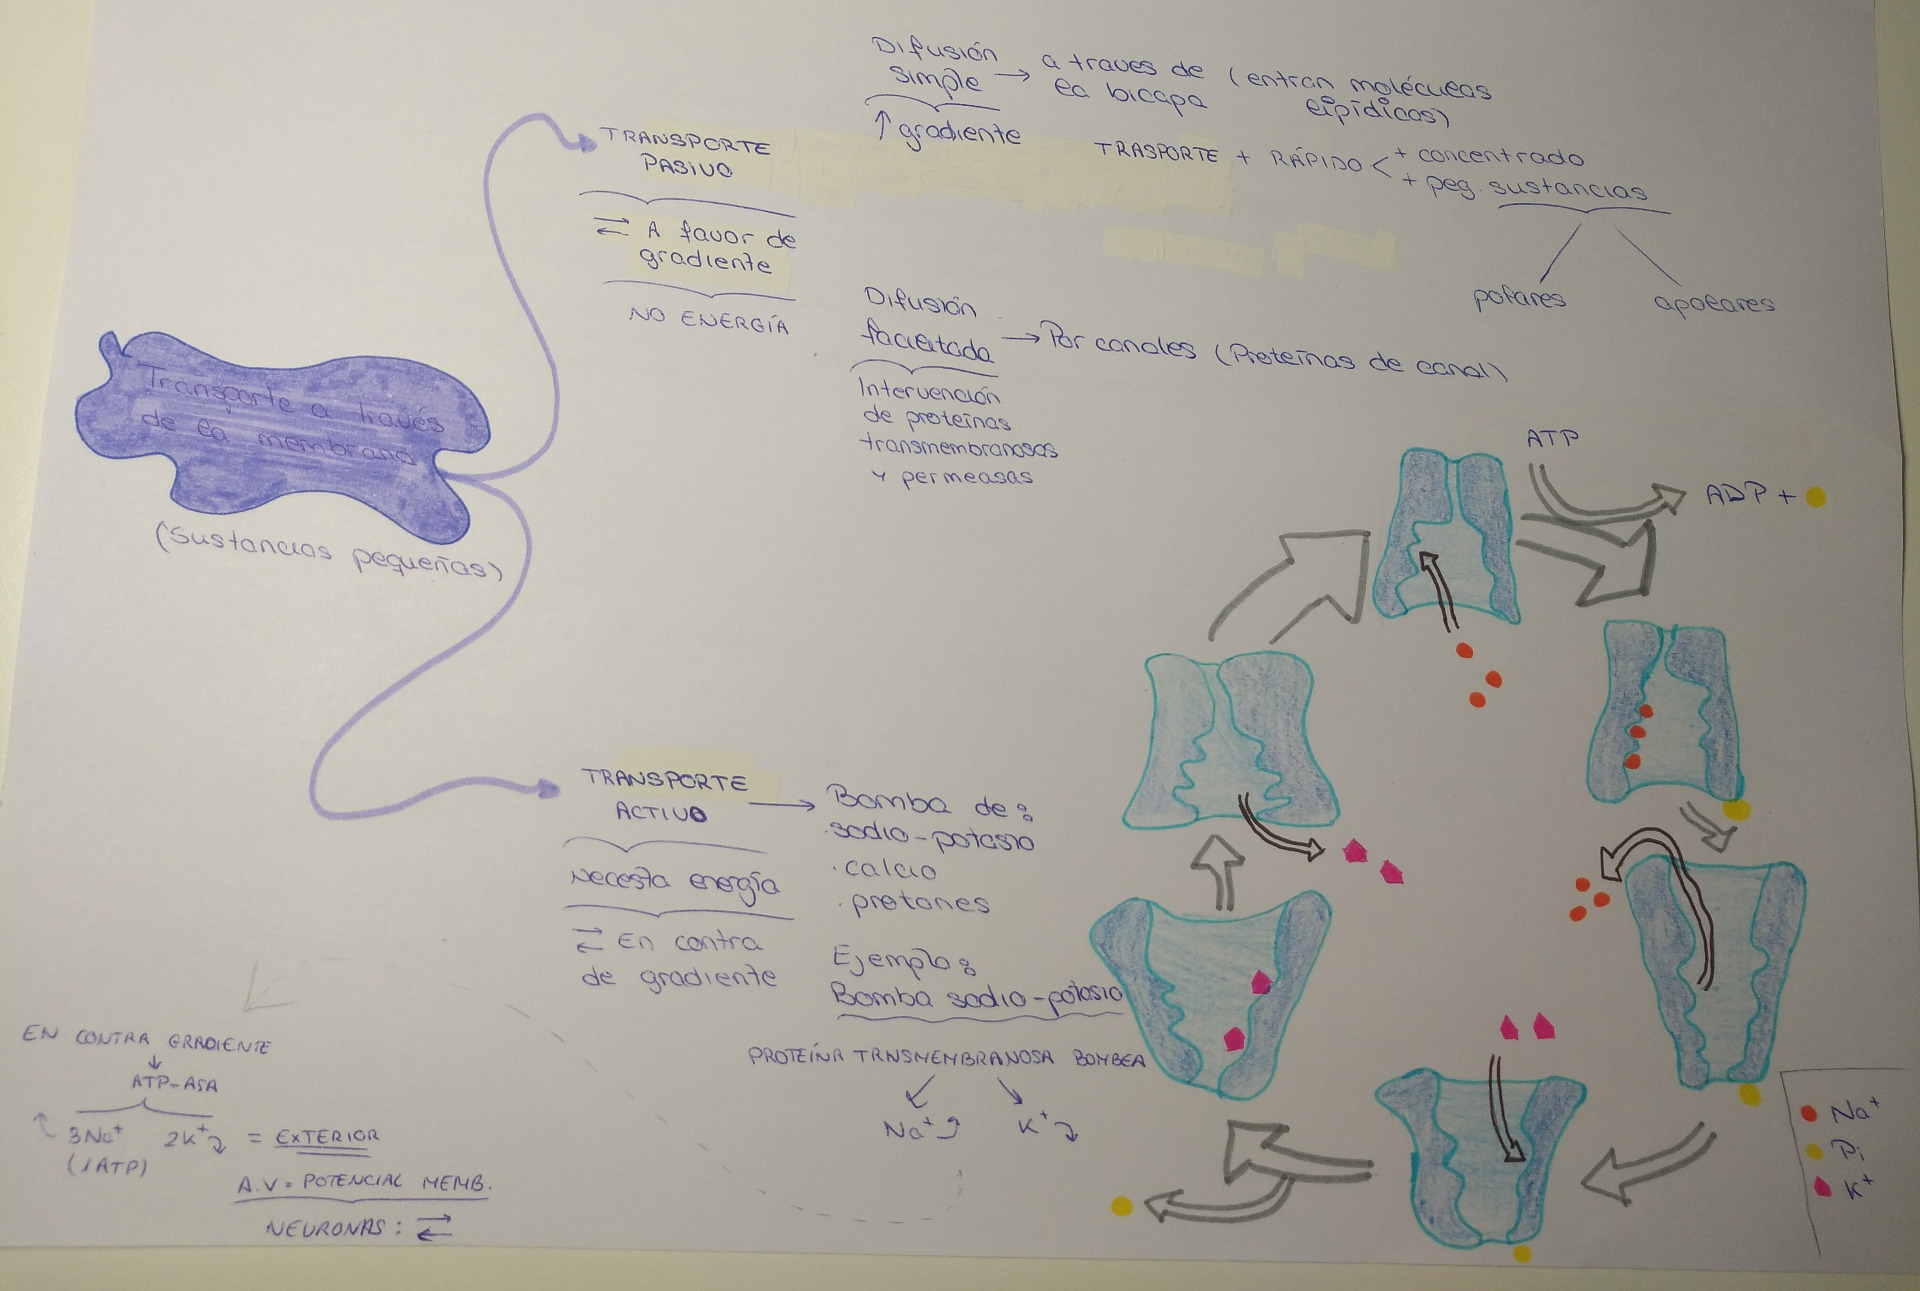 Transporte a través
de la membrana
(sustancias pequeñas)
TRANSPORTE
PASIVO
⇄ A favor de
gradiente
NO ENERGÍA
Difusión
simple → a traves de (entran moléculas
la bicapa lipídicas)
↑ gradiente
TRASPORTE + RÁPIDO < + concentrado
+ peq. sustancias
polares apolares
Difusión
facilitada → Por canales (Proteínas de canal)
Intervención
de proteínas
transmembranosas
y permeasas
TRANSPORTE
ACTIVO
necesita energía
⇄ En contra
de gradiente
→ Bomba de:
· sodio-potasio
· calcio
· protones
Ejemplo:
Bomba sodio-potasio
PROTEÍNA TRNSMEMBRANOSA BOMBEA
Na⁺ K⁺
EN CONTRA GRADIENTE
↓
ATP-ASA
3Na⁺ 2K⁺ = EXTERIOR
(1ATP)
A.V = POTENCIAL MEMB.
NEURONAS: ⇄
ATP
ADP +
Na⁺
Pi
K⁺